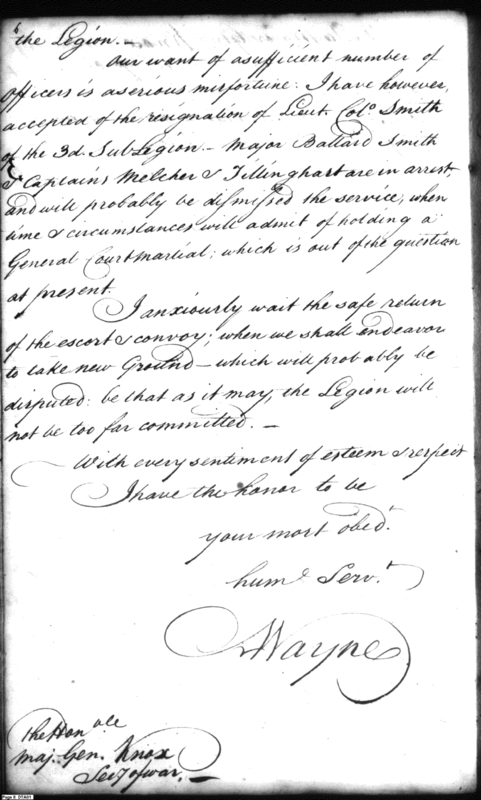 the Legion. —
Our want of a sufficient number of
Officers is a serious misfortune: I have however,
accepted of the resignation of Lieut Colo. Smith
of the 3d. Sub Legion — Major Ballard Smith
& Captains Melcher & Tillinghart are in arrest
and will probably be dismissed the service, when
time & circumstances will admit of holding a
General Court martial; which is out of the question
at present.
I anxiously wait the safe return
of the escort & convoy; when we shall endeavor
to take new Ground — which will probably be
disputed: be that as it may, the Legion will
not be too far committed. —
With every sentiment of esteem & respect
I have the honor to be
your most obedt.
hume Servt.
A Wayne
The Honble
Maj. Gen. Knox
Secy of war. —